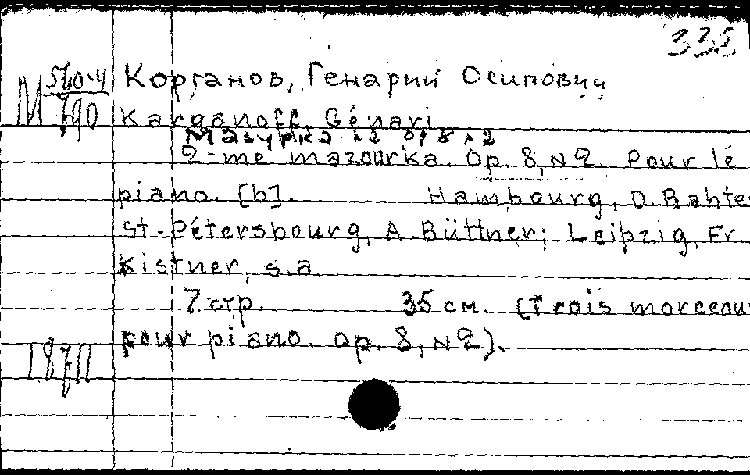 335
М 520-4 Корганов, Генарий Осипович
790 Karganoff, Génari
Мазурка №2 ор 8 №2
2-me mazourka. Op. 8, N 2. Pour le
piano. [b]. Hambourg, D. Rahte
St.-Pétersbourg, A. Büttner; Leipzig, Fr.
Kistner, s.a
7 стр. 35 см. (Trois morceau
pour piano. Op. 8, N 2).